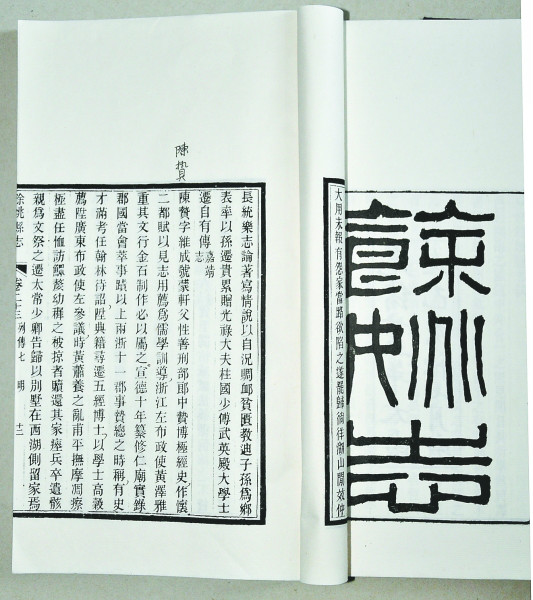 餘姚志
大用未報有怨家當路欲陷之遂罷歸徜徉湖山閒效仲
陳贄
長統樂志論著寫情說以自況賙卹貧匱教迪子孫爲鄉
表率以孫遷貴累贈光祿大夫柱國少傅武英殿大學士
遷自有傳嘉靖志
陳贄字維成號蒙軒父性善刑部郎中贄博極經史作懷
二都賦以見志用薦爲儒學訓導浙江左布政使黃澤雅
重其文行金石制作必以屬之宣德十年纂修仁廟實錄
郡國當會萃事蹟以上兩浙十一郡事贄總之時稱有史
才滿考任翰林待詔陞典籍尋遷五經博士以學士高穀
薦陞廣東布政使左參議時黃蕭養之亂甫平撫摩凋瘵
極盡任恤訪鰥嫠幼穉之被掠者贖還其家瘞兵卒遺骸
親爲文祭之遷太常少卿告歸以別墅在西湖側留家焉
餘姚縣志 卷二十三 列傳七 明 十二